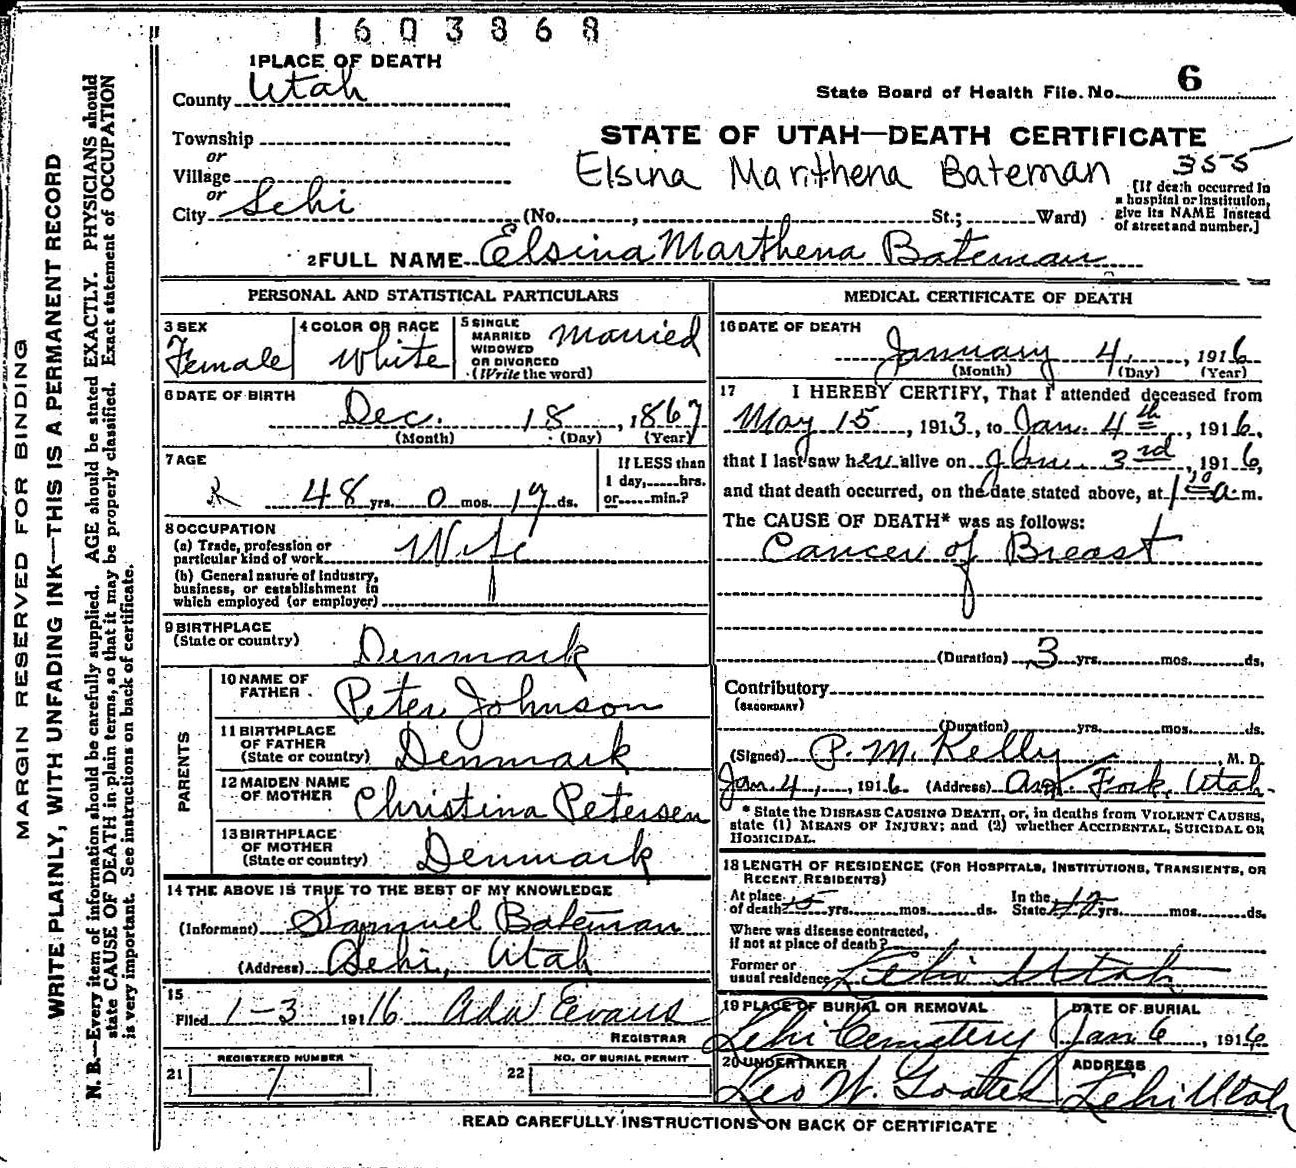 1603868
1 PLACE OF DEATH
County Utah
State Board of Health File. No. 6
Township
or
Village
or
City Lehi (No. , St.; Ward)
STATE OF UTAH—DEATH CERTIFICATE
Elsina Marthena Bateman 355
[If death occurred in a hospital or institution, give its NAME instead of street and number.]
2 FULL NAME Elsina Marthena Bateman
PERSONAL AND STATISTICAL PARTICULARS
3 SEX Female
4 COLOR OR RACE White
5 SINGLE MARRIED WIDOWED OR DIVORCED (Write the word) Married
6 DATE OF BIRTH
Dec. 18, 1867
(Month) (Day) (Year)
7 AGE
48 yrs. 0 mos. 17 ds.
If LESS than 1 day, hrs. or min.?
8 OCCUPATION
(a) Trade, profession or particular kind of work Wife
(b) General nature of Industry, business, or establishment in which employed (or employer)
9 BIRTHPLACE
(State or country) Denmark
PARENTS
10 NAME OF FATHER Peter Johnson
11 BIRTHPLACE OF FATHER (State or country) Denmark
12 MAIDEN NAME OF MOTHER Christina Petersen
13 BIRTHPLACE OF MOTHER (State or country) Denmark
14 THE ABOVE IS TRUE TO THE BEST OF MY KNOWLEDGE
(Informant) Samuel Bateman
(Address) Lehi, Utah
15
Filed 1-3 191 16 Ada Evans
REGISTRAR
REGISTERED NUMBER
21 1
NO. OF BURIAL PERMIT
22
MEDICAL CERTIFICATE OF DEATH
16 DATE OF DEATH
January 4, 1916
(Month) (Day) (Year)
17 I HEREBY CERTIFY, That I attended deceased from
May 15, 1913, to Jan. 4th, 1916,
that I last saw her alive on Jan. 3rd, 1916,
and that death occurred, on the date stated above, at a m.
The CAUSE OF DEATH* was as follows:
Cancer of Breast
(Duration) 3 yrs. mos. ds.
Contributory
(SECONDARY)
(Duration) yrs. mos. ds.
(Signed) P. M. Kelly, M. D.
Jan. 4, 1916 (Address) Am. Fork, Utah.
* State the DISEASE CAUSING DEATH, or, in deaths from VIOLENT CAUSES,
state (1) MEANS OF INJURY; and (2) whether ACCIDENTAL, SUICIDAL OR
HOMICIDAL.
18 LENGTH OF RESIDENCE (FOR HOSPITALS, INSTITUTIONS, TRANSIENTS, OR
RECENT RESIDENTS)
At place of death yrs. mos. ds. In the State yrs. mos. ds.
Where was disease contracted,
if not at place of death?
Former or
usual residence Lehi Utah
19 PLACE OF BURIAL OR REMOVAL
Lehi Cemetery
DATE OF BURIAL
Jan 6, 1916
20 UNDERTAKER
Leo W. Goates
ADDRESS
Lehi Utah
READ CAREFULLY INSTRUCTIONS ON BACK OF CERTIFICATE
MARGIN RESERVED FOR BINDING
WRITE PLAINLY, WITH UNFADING INK—THIS IS A PERMANENT RECORD
N. B.—Every item of information should be carefully supplied. AGE should be stated EXACTLY. PHYSICIANS should
state CAUSE OF DEATH in plain terms, so that it may be properly classified. Exact statement of OCCUPATION
is very important. See instructions on back of certificate.